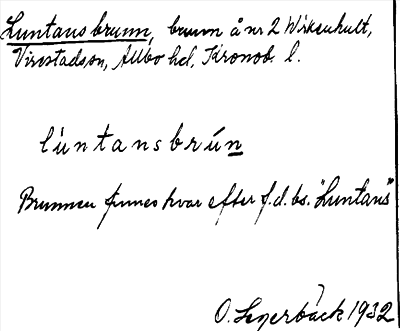 Luntans brunn, brunn å nr 2 Wirkenhult,
Virestads sn, Allbo hd, Kronob. l.
lùntansbrún
Brunnen finnes kvar efter f.d. bs. "Luntans"
O. Segerbäck 1932